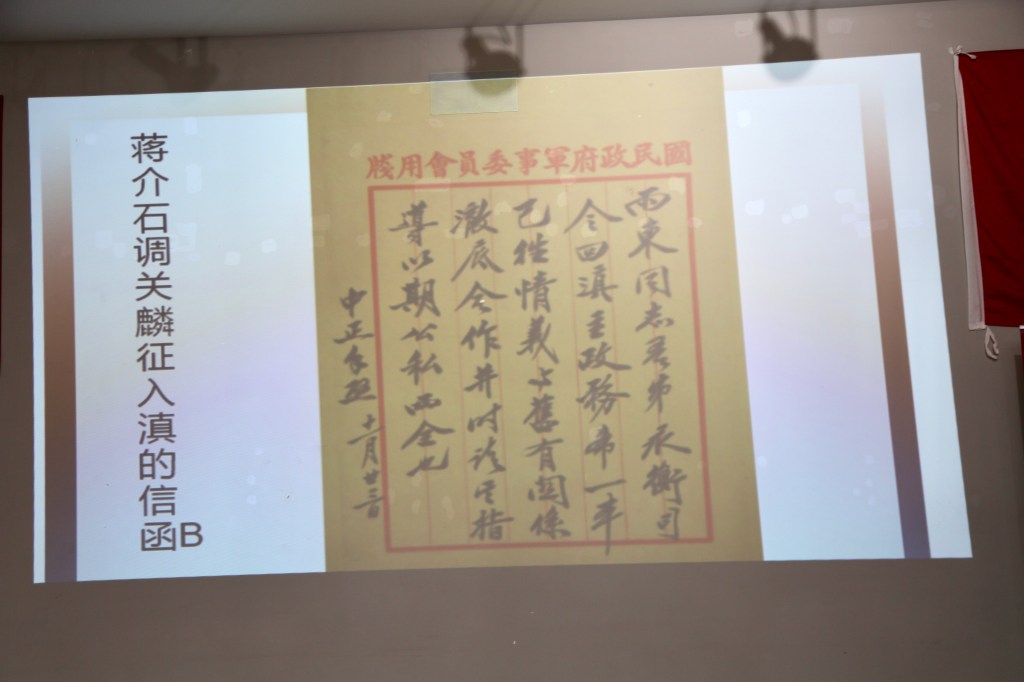 蒋介石调关麟征入滇的信函B
國民政府軍事委員會用牋
雨東同志吾弟永衡可
令回滇主政務希一本
已往情義与舊有關係
澈底合作并時請其指
導以期公私兩全也
中正手啟
月廿三日